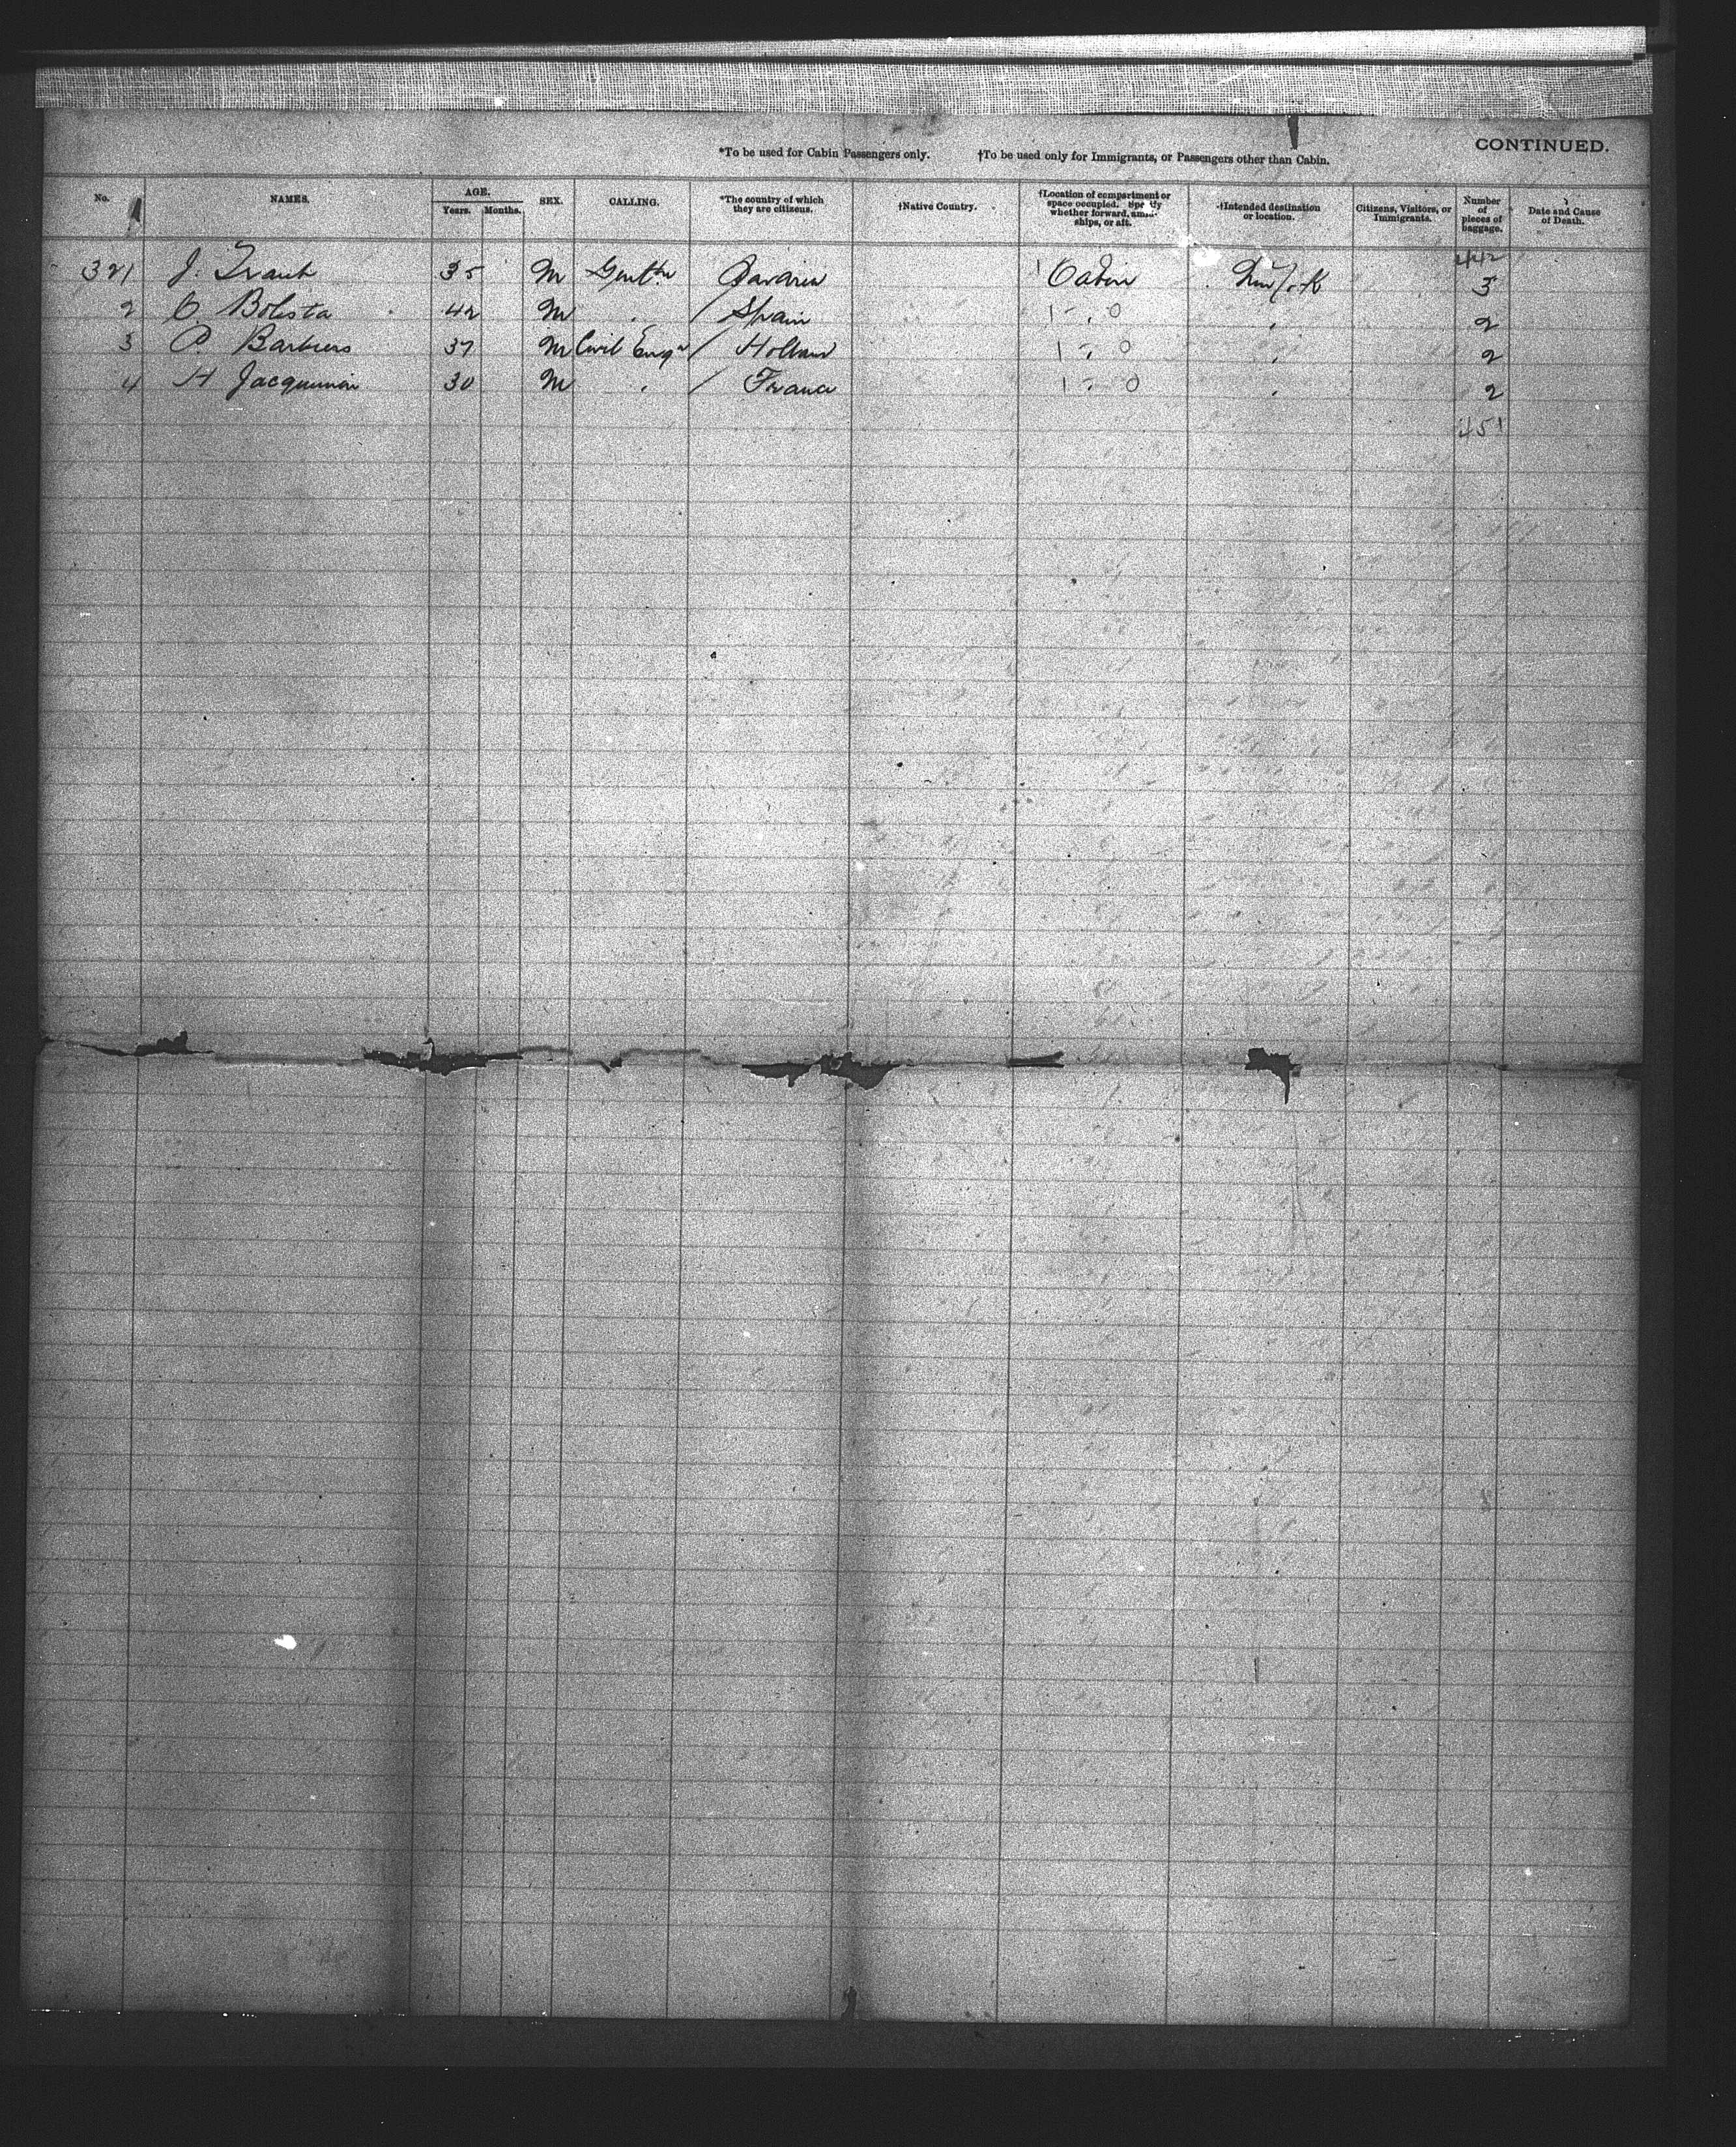 CONTINUED.
*To be used for Cabin Passengers only. †To be used only for Immigrants, or Passengers other than Cabin.
No. NAMES. AGE. Years. Months. SEX. CALLING. *The country of which they are citizens. †Native Country. †Location of compartment or space occupied. whether forward, amidships, or aft. †Intended destination or location. Citizens, Visitors, or Immigrants. Number of pieces of baggage. Date and Cause of Death.
442
321 J. 35 M Gentn Bavaria Cabin New York 3
2 C Bolista 42 M / Spain 1 - 0 2
3 P. Barbiers 37 M Civil Engr / Holland 1 - 0 2
4 H Jacquemin 30 M / France 1 - 0 2
451